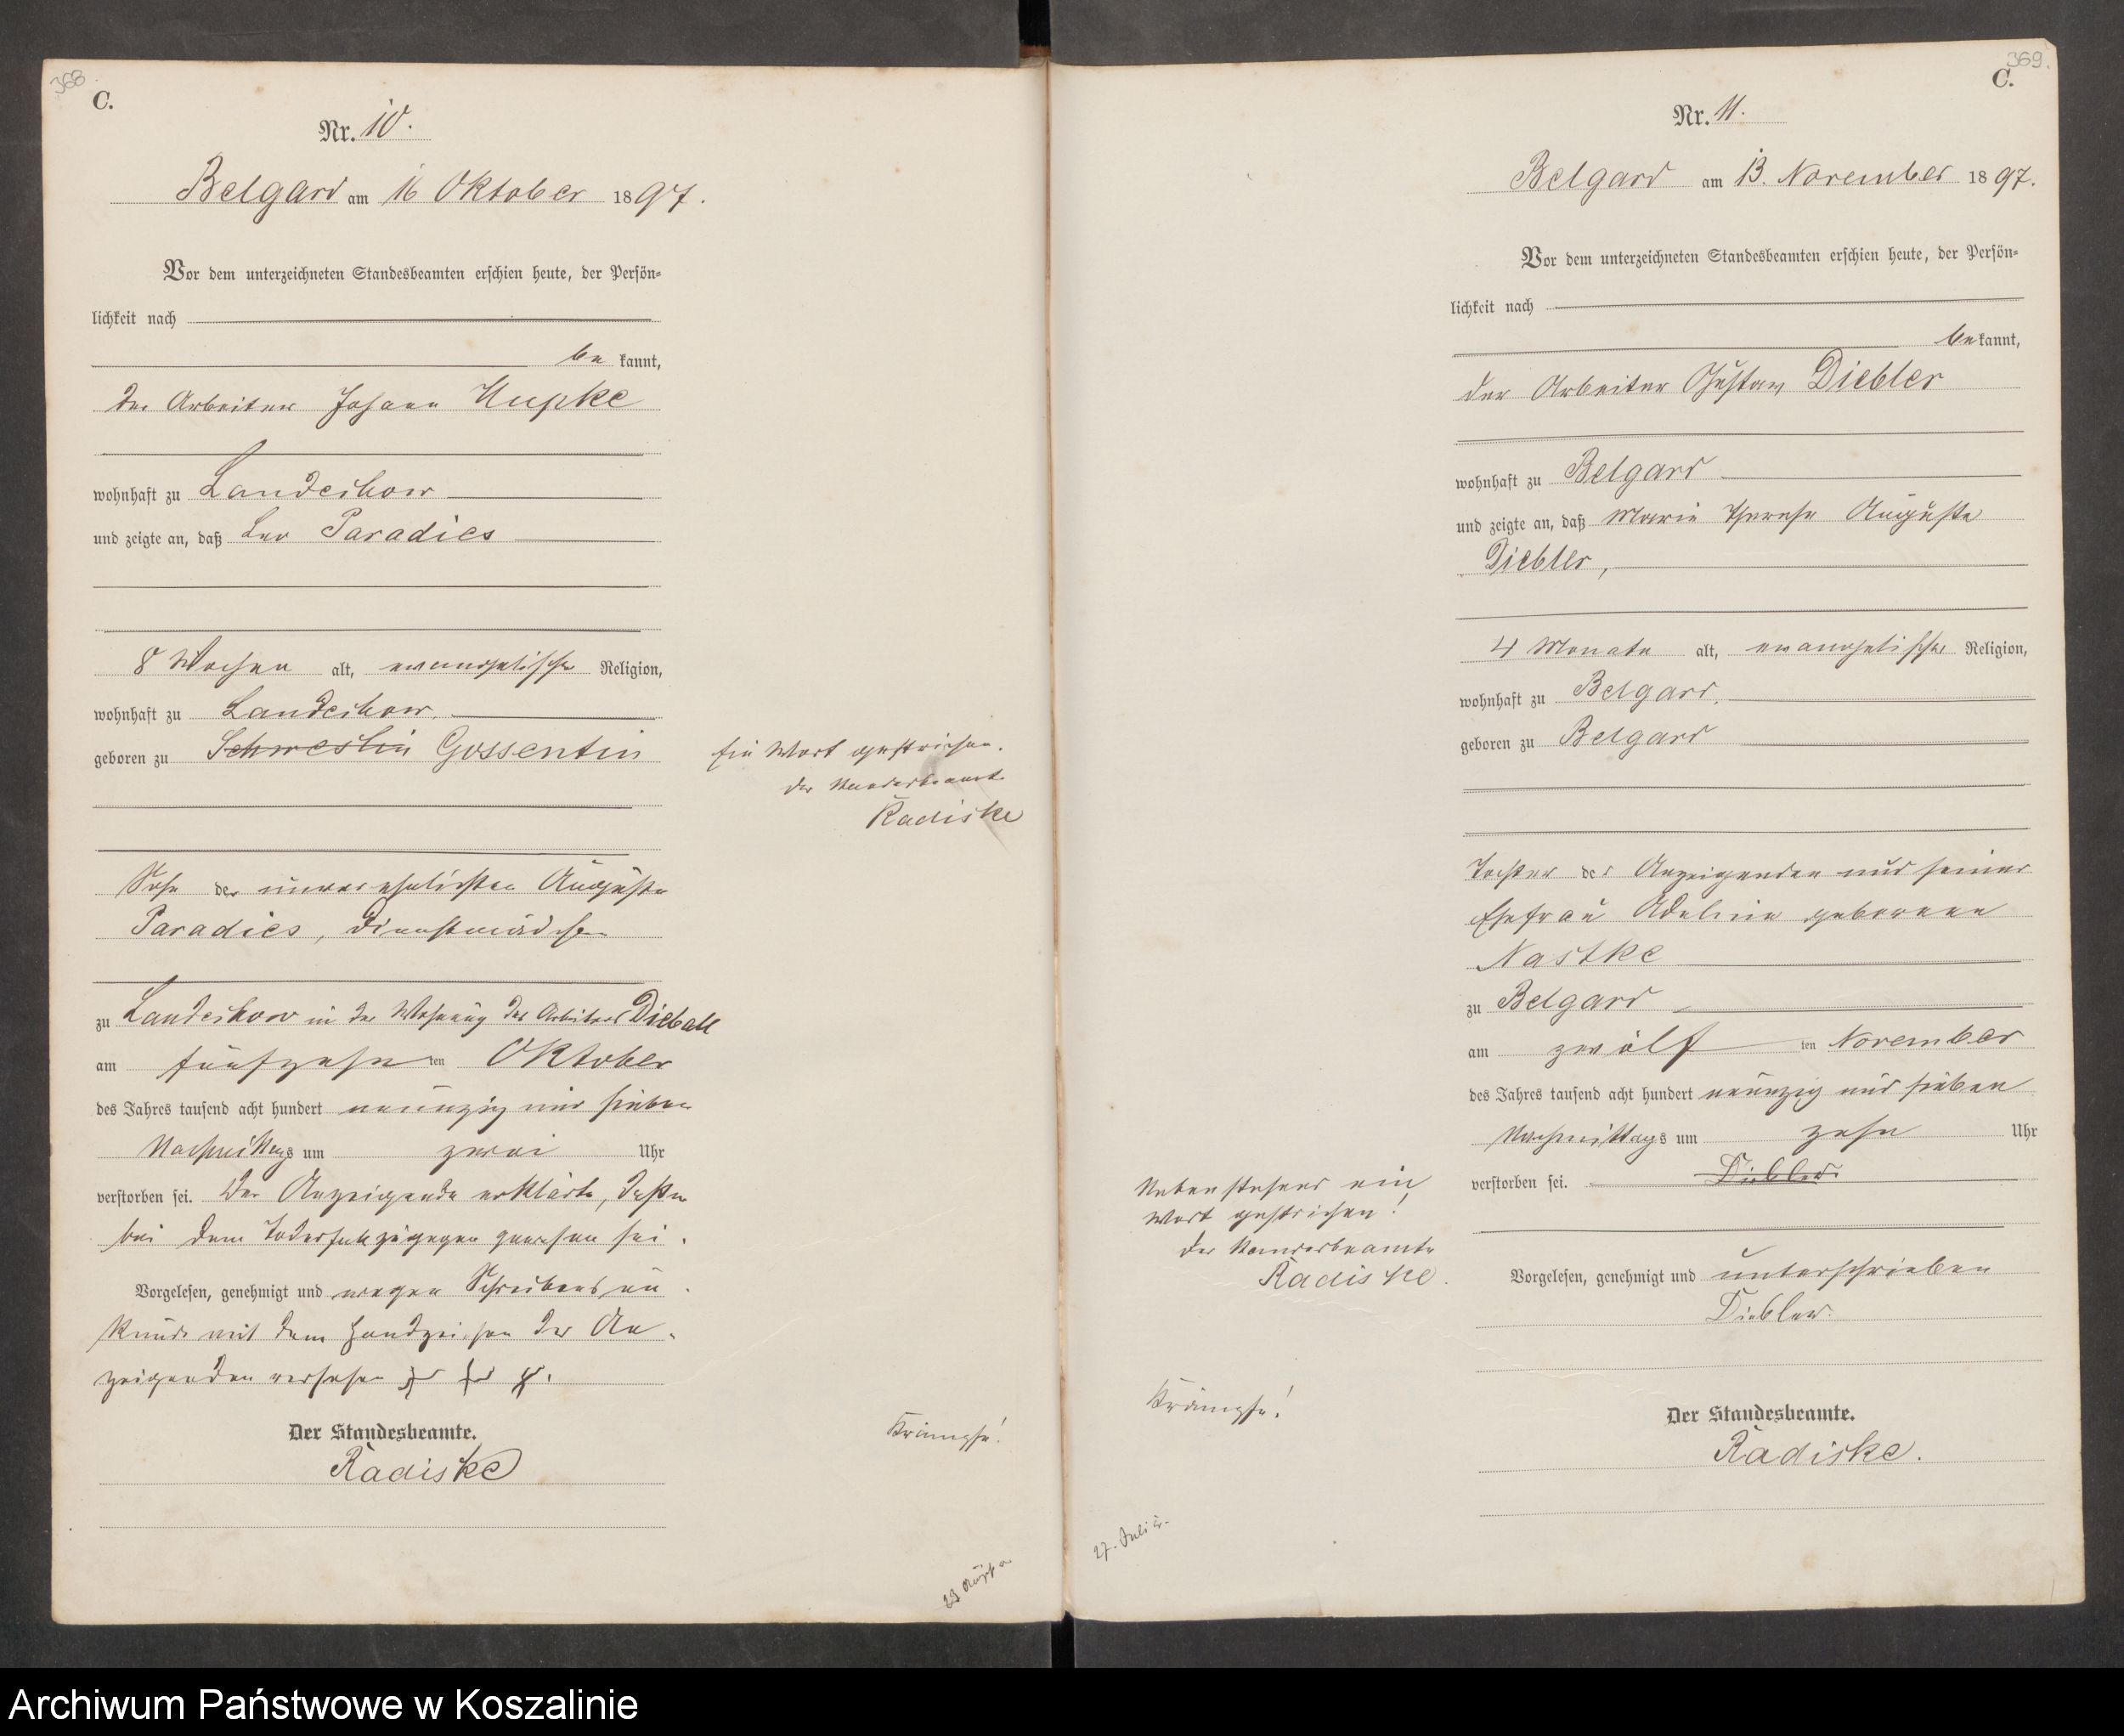 368
C.
Nr. 10.
Belgard am 16 Oktober 1897.
Vor dem unterzeichneten Standesbeamten erschien heute, der Persön-
lichkeit nach
be kannt,
der Arbeiter Johann Kupke
wohnhaft zu Landechow
und zeigte an, daß Leo Paradies
8 Wochen alt, evangelischer Religion,
wohnhaft zu Landechow.
geboren zu Schweslin Gossentin
Ein Wort gestrichen.
Der Standesbeamte
Radiske
Sohn der unverehelichten Auguste
Paradies, Dienstmädchen
zu Landechow in der Wohnung des Arbeiters Dieball
am fünfzehn ten Oktober
des Jahres tausend acht hundert neunzig und sieben
Nachmittags um zwei Uhr
verstorben sei. Der Anzeigende erklärte, daß er
bei dem Todesfall zugegen gewesen sei.
Vorgelesen, genehmigt und wegen Schreibensun-
kunde mit dem Handzeichen des An-
zeigenden versehen
Der Standesbeamte.
Radiske
Krämpfe!
23 August
369.
C.
Nr. 11.
Belgard am 13. November 1897.
Vor dem unterzeichneten Standesbeamten erschien heute, der Persön-
lichkeit nach
be kannt,
der Arbeiter Gustav Diebler
wohnhaft zu Belgard
und zeigte an, daß Marie Therese Auguste
Diebler,
4 Monate alt, evangelischer Religion,
wohnhaft zu Belgard,
geboren zu Belgard
Tochter des Anzeigenden und seiner
Ehefrau Adeline geborenen
Nastke
zu Belgard
am zwölf ten November
des Jahres tausend acht hundert neunzig und sieben
Nachmittags um zehn Uhr
verstorben sei. Diebler.
Nebenstehend ein
Wort gestrichen!
Der Standesbeamte
Radiske.
Vorgelesen, genehmigt und unterschrieben
Diebler.
Krämpfe!
Der Standesbeamte.
Radiske.
27. Juli
Archiwum Państwowe w Koszalinie